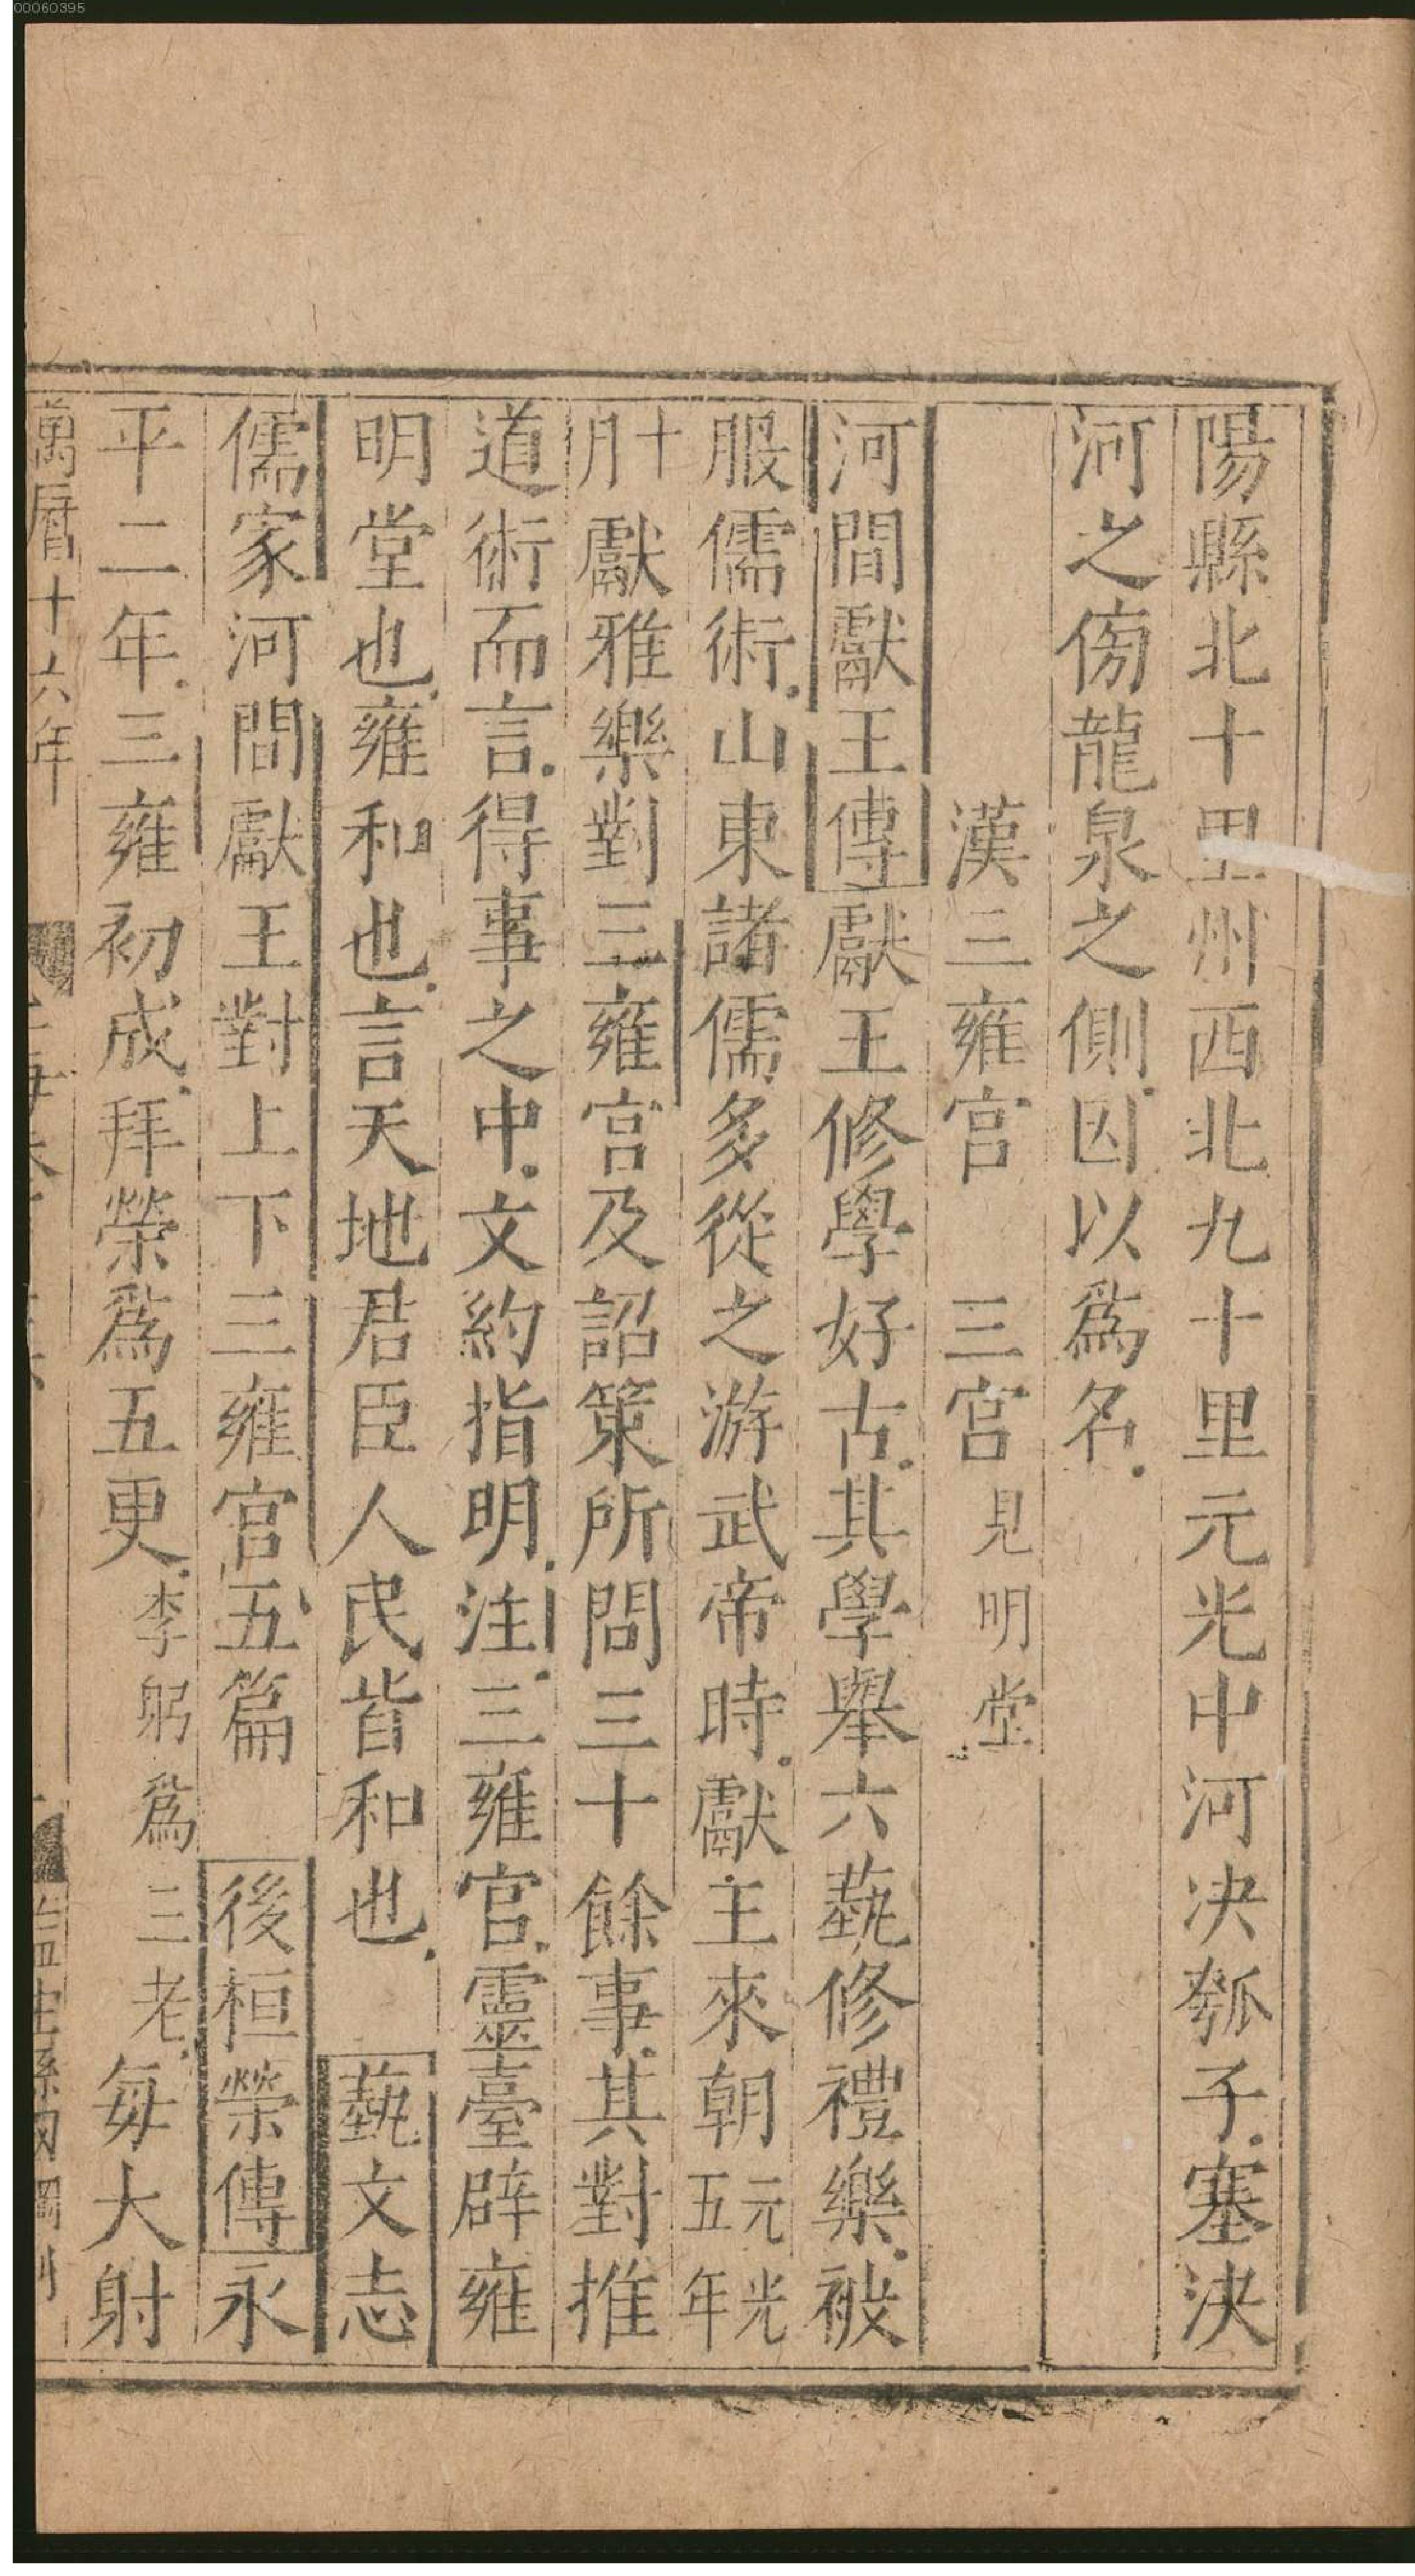 00060395
陽縣北十里州西北九十里元光中河决瓠子塞決
河之傍龍泉之側因以為名
漢三雍宮　三宮見明堂
河間獻王傳獻王修學好古其學舉六藝修禮樂被
服儒術山東諸儒多從之游武帝時獻王來朝元光五年
十月獻雅樂對三雍宮及詔策所問三十餘事其對推
道術而言得事之中文約指明注三雍宮靈臺辟雍
明堂也雍和也言天地君臣人民皆和也　藝文志
儒家河間獻王對上下三雍宮五篇　後桓榮傳永
平二年三雍初成拜榮爲五更李躬爲三老每大射
萬曆十六年